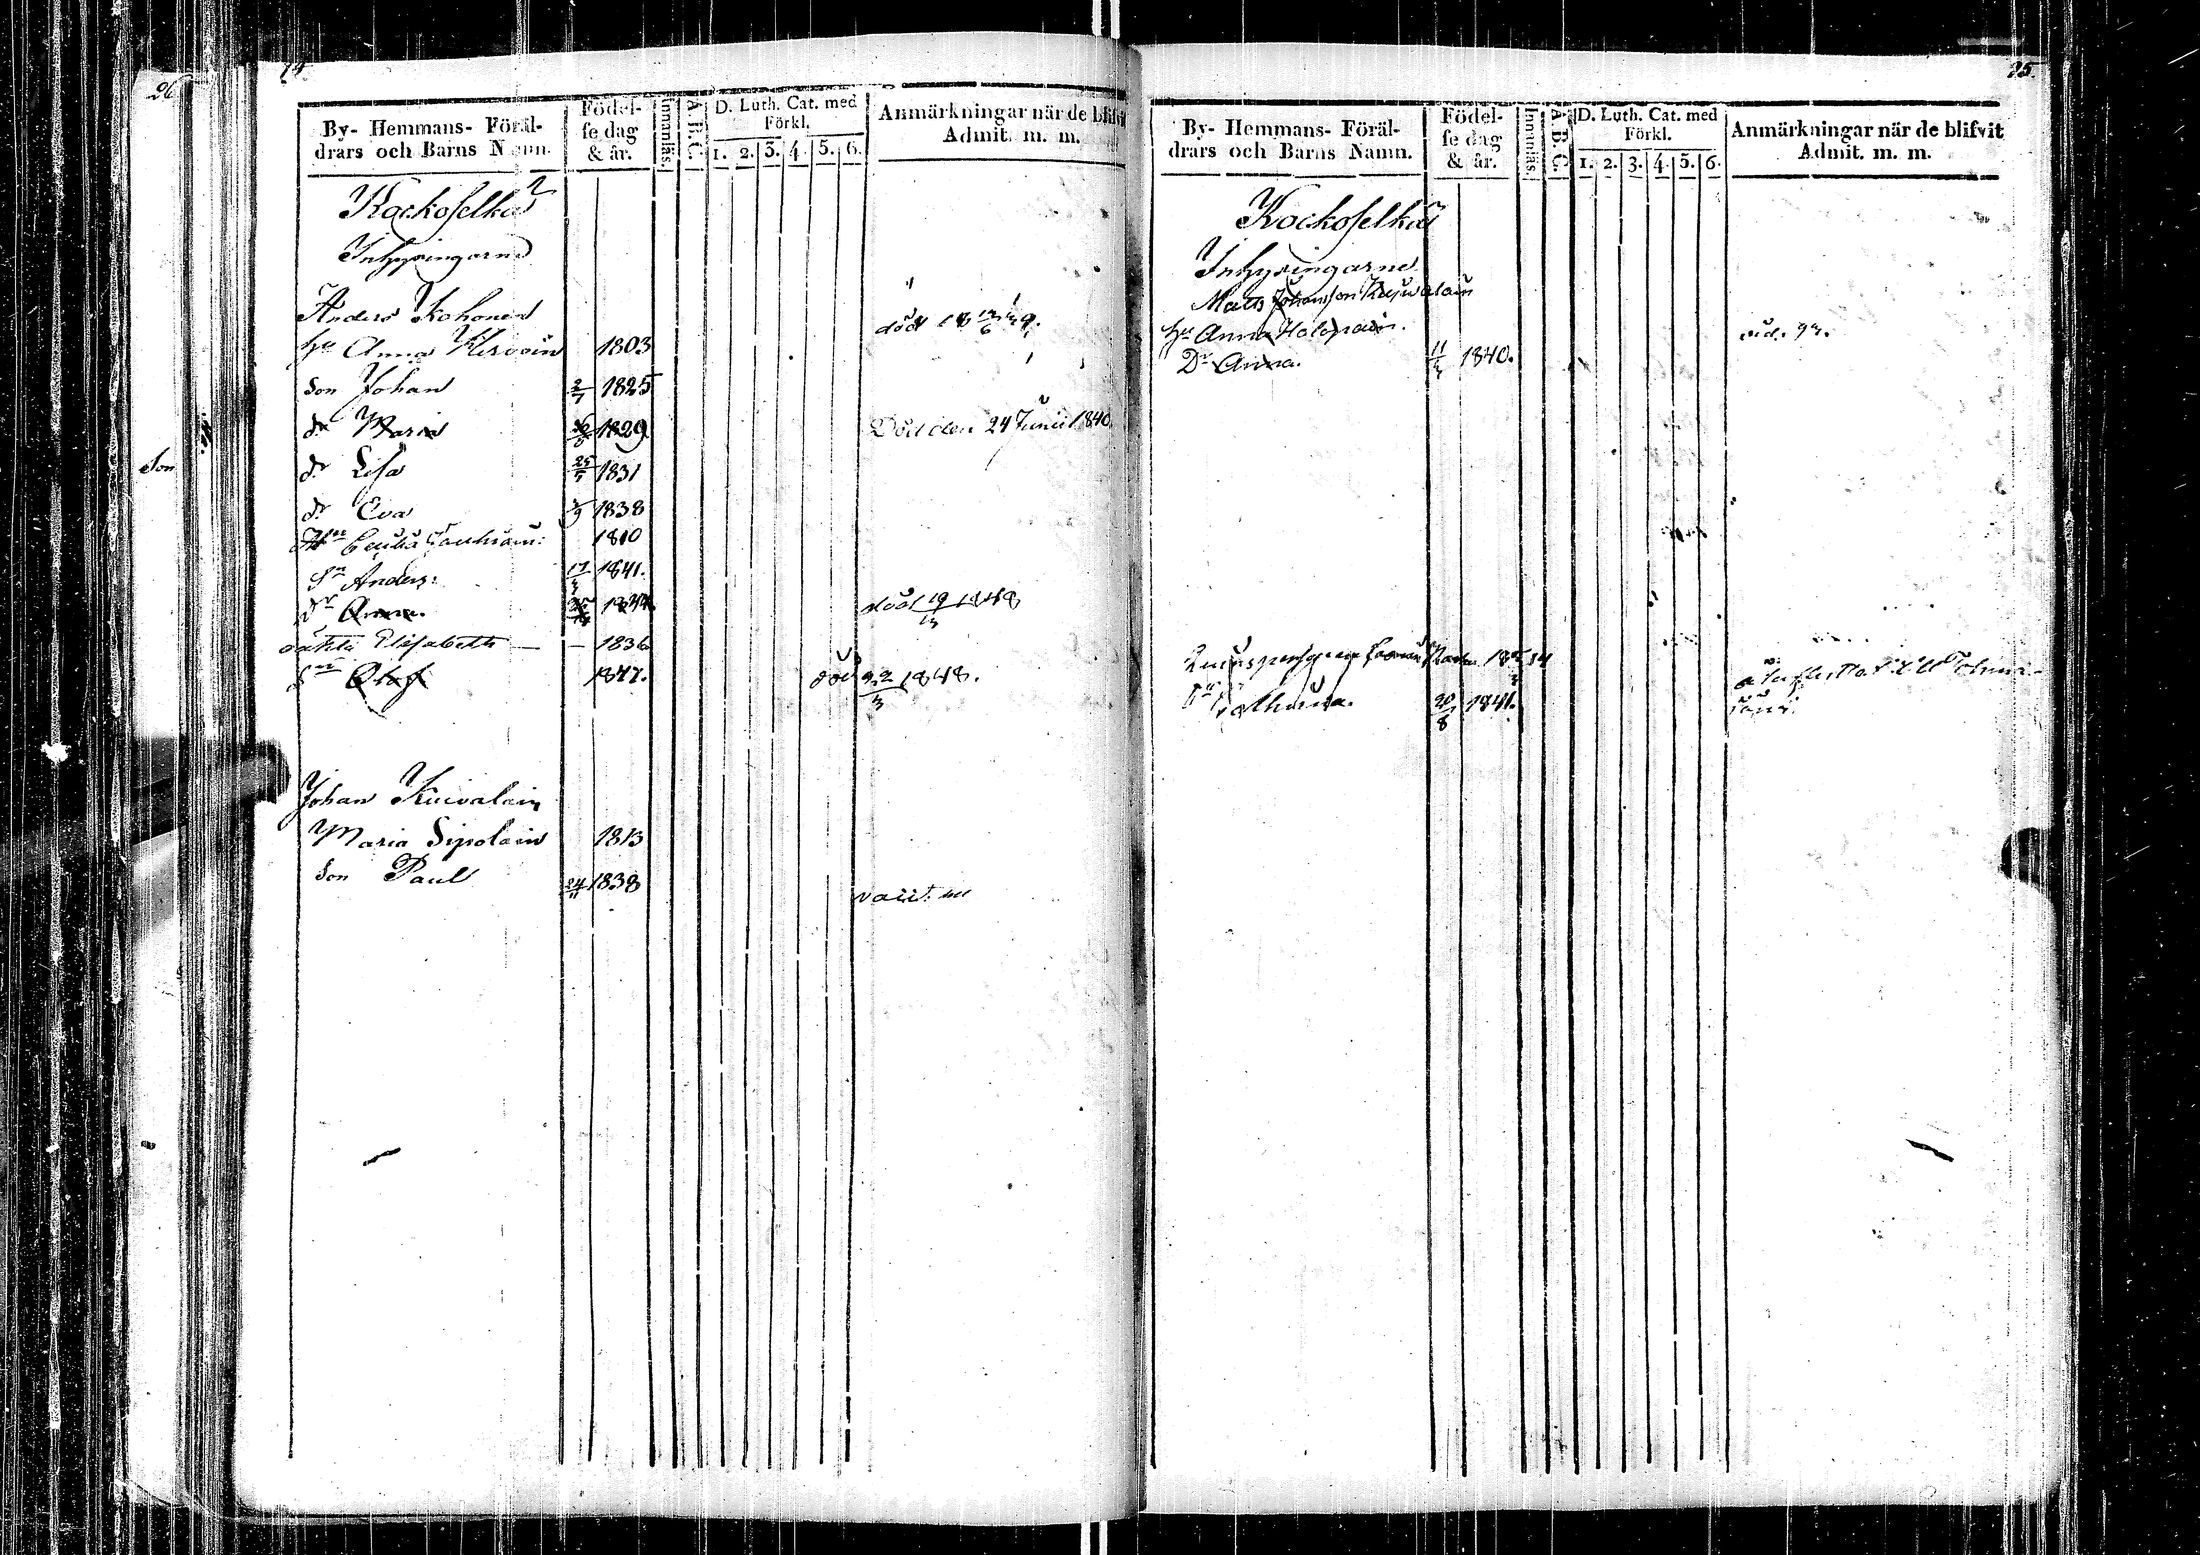 26
Son
74.
By- Hemmans- Föräl-
drars och Barns Namn.
Födel-
se dag
& år.
Innanläs.
A.B.C.
D. Luth. Cat. med
Förkl.
1. 2. 3. 4. 5. 6.
Anmärkningar när de blifvit
Admit. m. m.
Kockoselkä 2
Inhysingarne
Anders Kohonen
hu Anna Hirvoin 1803
Son Johan 2/7 1825
dr Maria 1829 Död den 24 Junii 1840.
dr Lisa 25/5 1831
dr Eva 1838
1810
Sn Anders. 17/3 1841.
dr Anna. död 19/3 1848
Elisabeth — — 1836
Sn Olof 1847. död 22/3 1848.
Johan Kuivalain
Maria Sipolain 1813
Son Paul 24/11 1838
75.
By- Hemmans- Föräl-
drars och Barns Namn.
Födel-
se dag
& år.
Innanläs.
A.B.C.
D. Luth. Cat. med
Förkl.
1. 2. 3. 4. 5. 6.
Anmärkningar när de blifvit
Admit. m. m.
Kockoselkä
Inhysingarne
Mats Johansson
hu Anna Holopain. vid. 92.
Dr Anna. 11/3 1840.
20/8 1841.